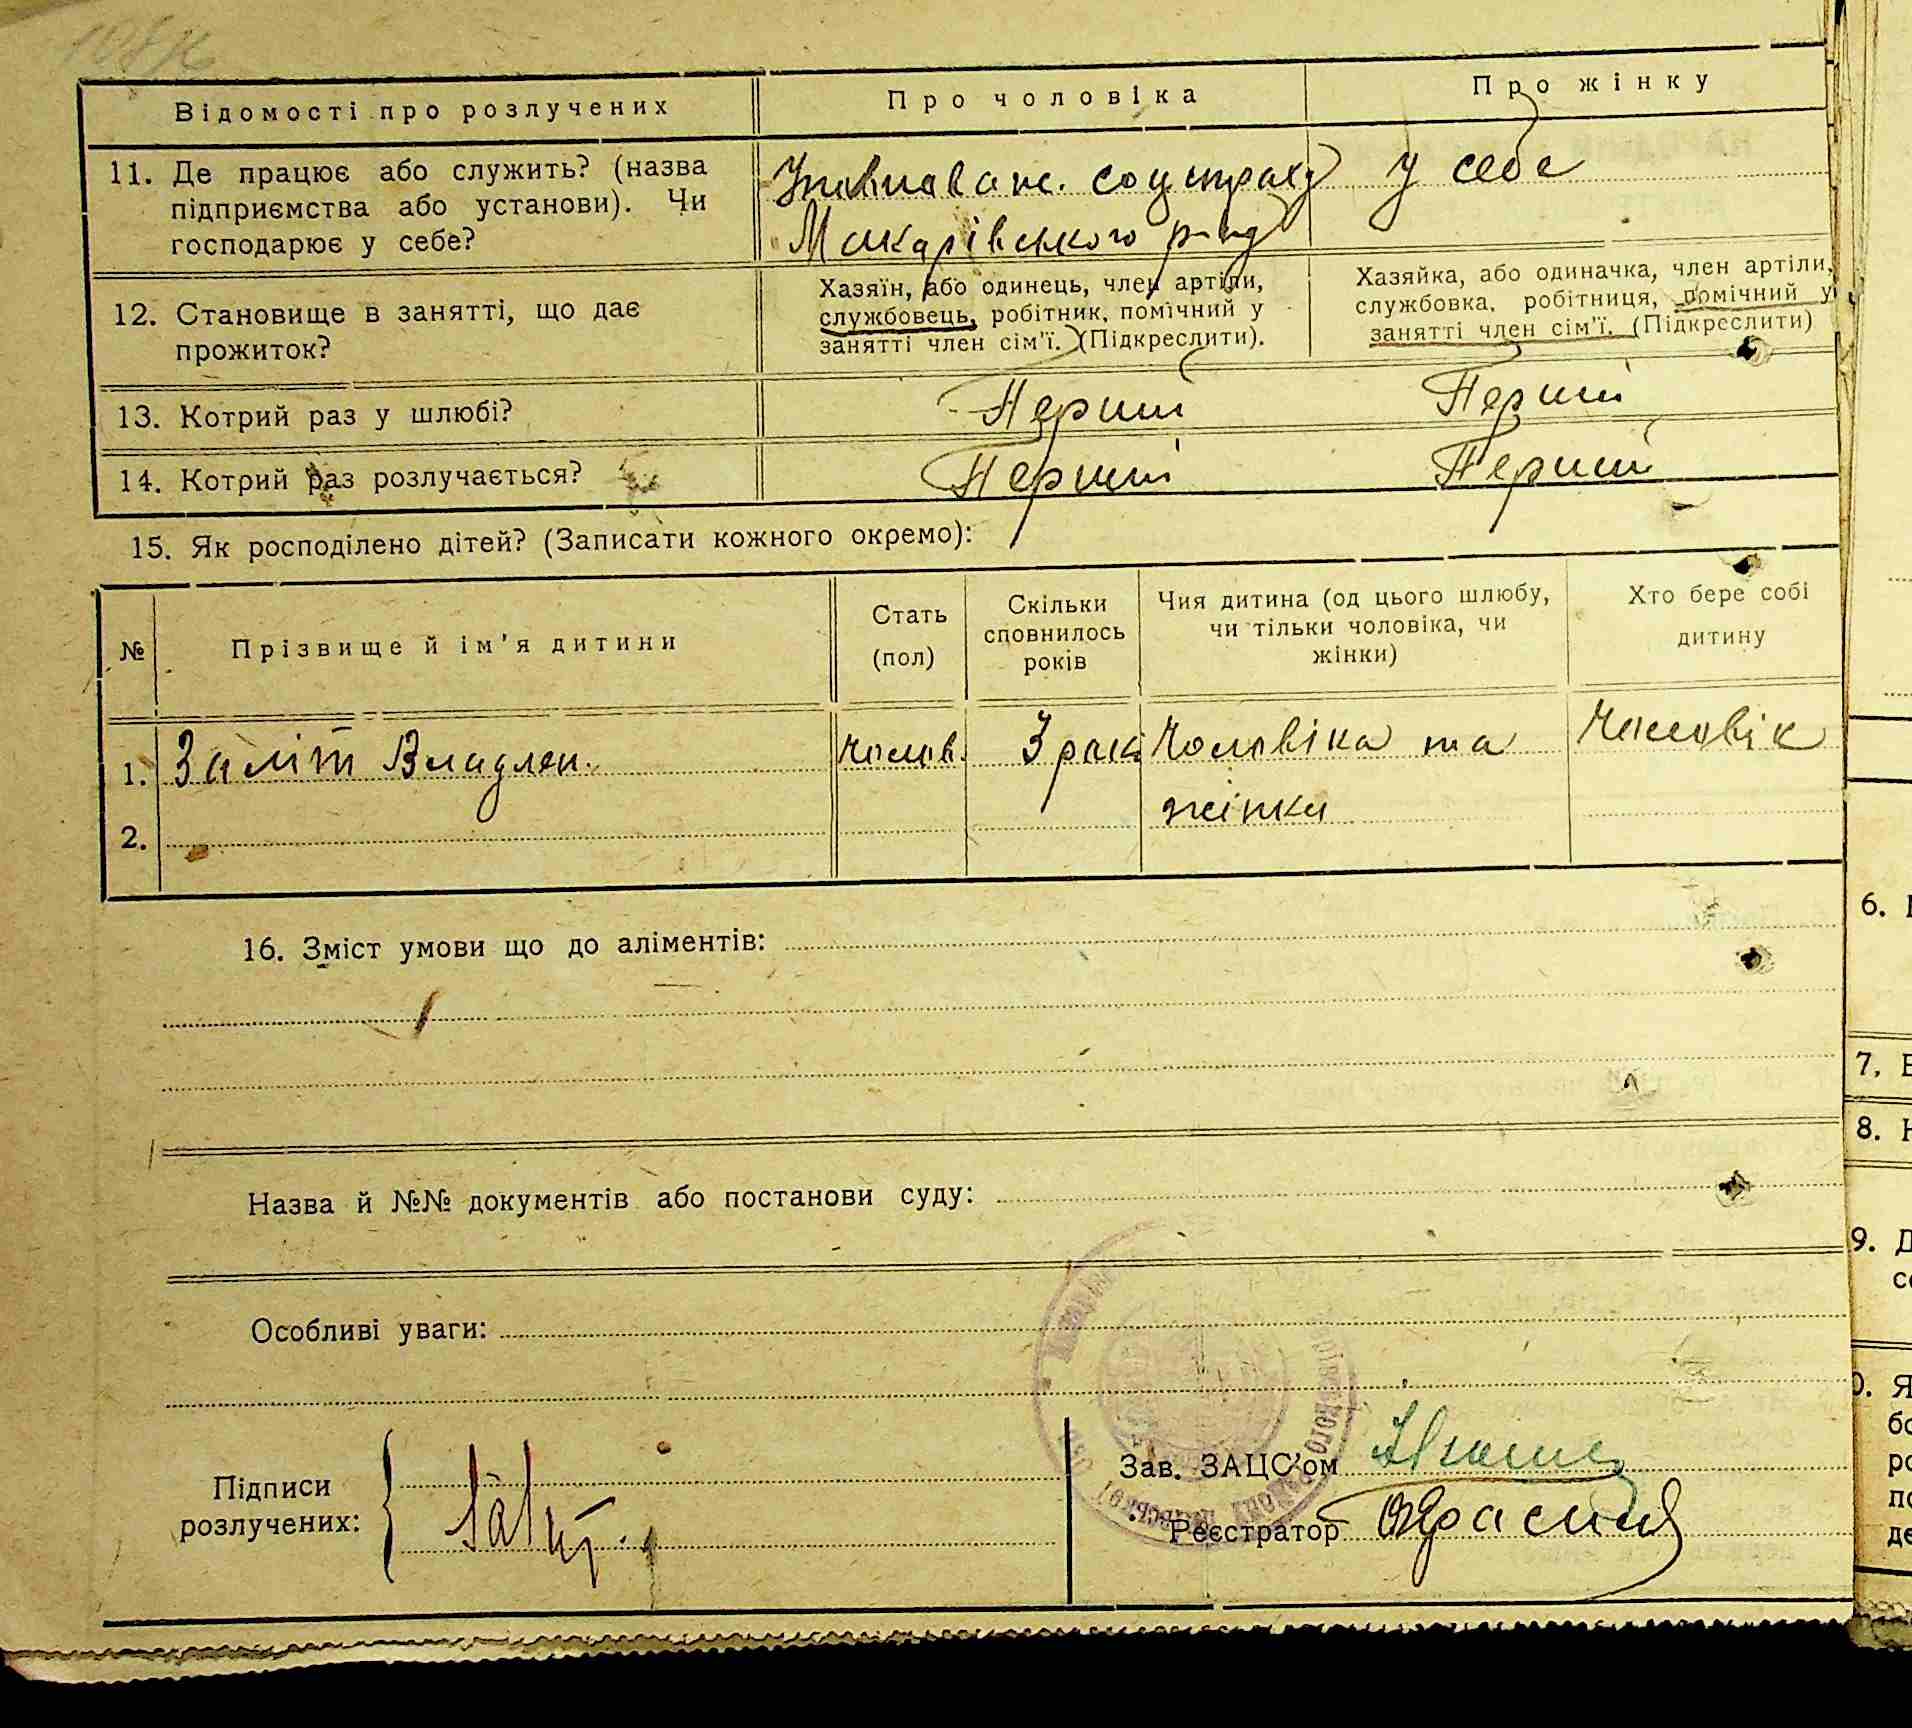 Відомості про розлучених
Про чоловіка
Про жінку
11. Де працює або служить? (назва
підприємства або установи). Чи
господарює у себе?
Уповноваж. соцстраху
Макарівського р-ну
у себе
12. Становище в занятті, що дає
прожиток?
Хазяїн, або одинець, член артіли,
службовець, робітник, помічний у
занятті член сім'ї. (Підкреслити).
Хазяйка, або одиначка, член артіли,
службовка, робітниця, помічний у
занятті член сім'ї. (Підкреслити)
13. Котрий раз у шлюбі?
Перший
Перший
14. Котрий раз розлучається?
Перший
Перший
15. Як росподілено дітей? (Записати кожного окремо):
№
Прізвище й ім'я дитини
Стать
(пол)
Скільки
сповнилось
років
Чия дитина (од цього шлюбу,
чи тільки чоловіка, чи
жінки)
Хто бере собі
дитину
1. Заліт Владлен. чолов. 3 рок. Чоловіка та Чоловік
жінки
2.
16. Зміст умови що до аліментів:
Назва й №№ документів або постанови суду:
Особливі уваги:
Підписи
розлучених:
Зав. ЗАЦС'ом
Реєстратор
6.
7.
8.
9.